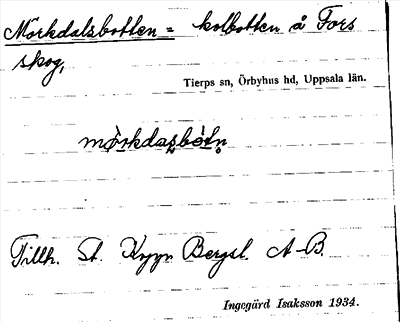 Mörkdalsbotten = kolbotten å Fors
skog,
Tierps sn, Örbyhus hd, Uppsala län.
mö̀rkdasbòtn̥
Tillh. St. Koppr Bergsl. A-B.
Ingegärd Isaksson 1934.